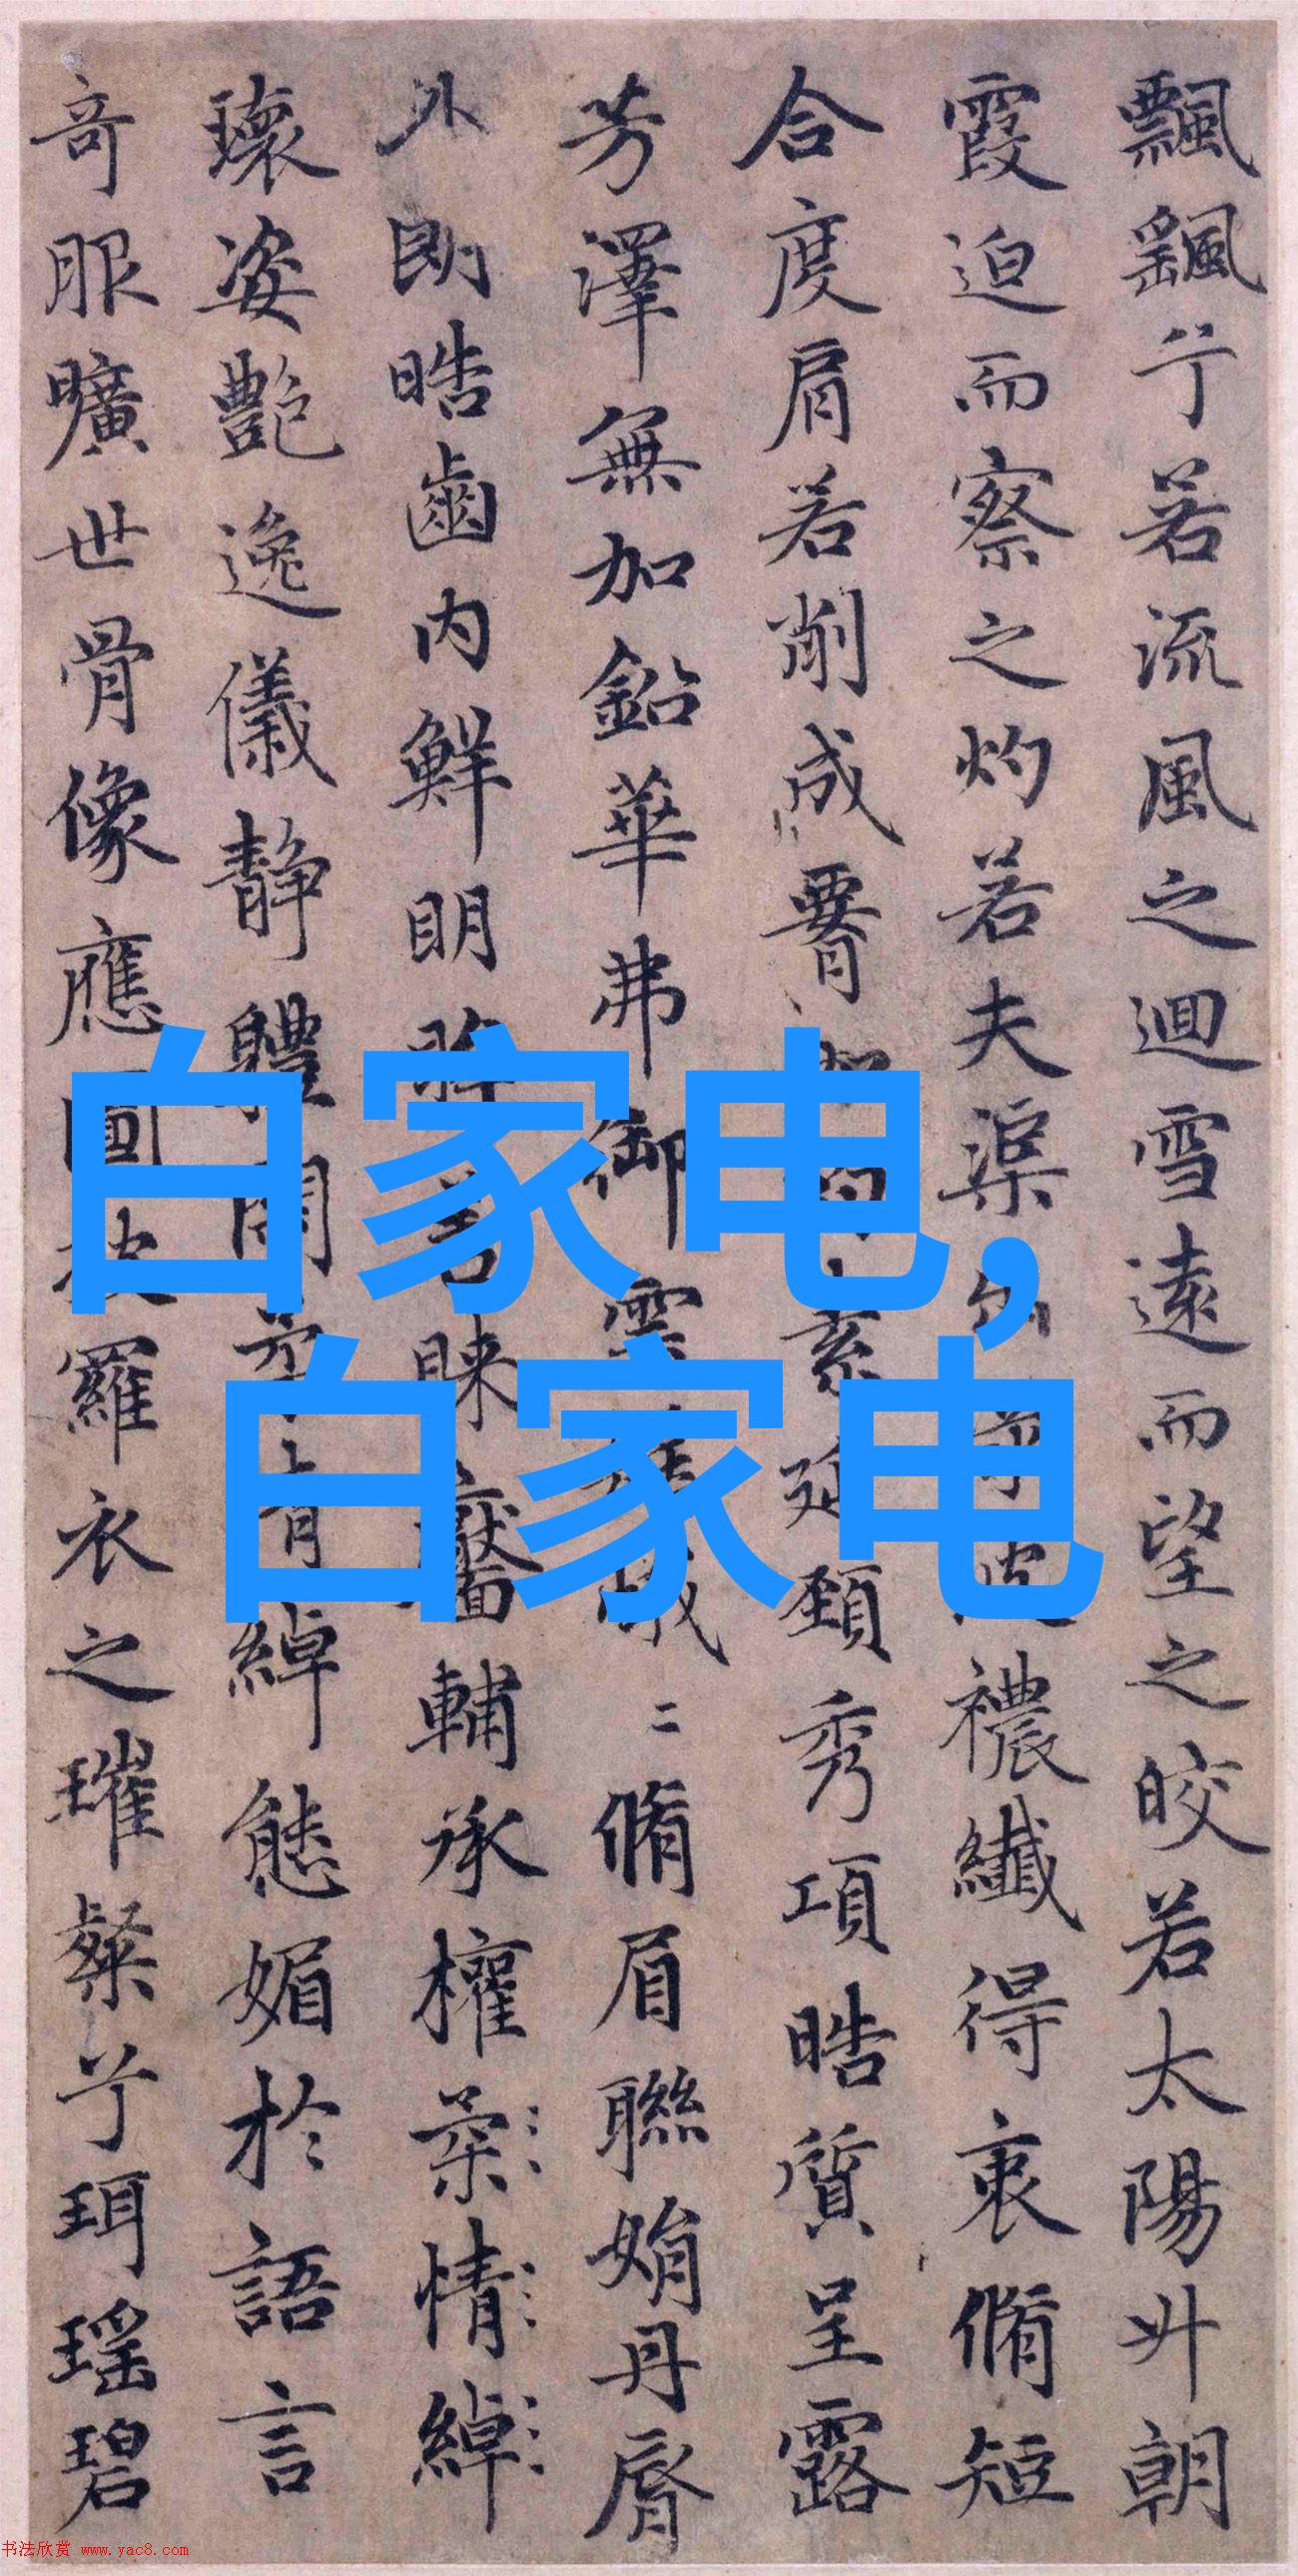 飄颻兮若流風之迴雪遠而望之皎若太陽升朝
霞迫而察之灼若夫渠襛纖得衷脩短
合度肩若削成腰素延頸秀項皓質呈露
芳澤無加鉛華弗御雲二脩眉聯娟丹脣
外朗皓齒内鮮明眸睞靨輔承權柔情綽
瓌姿艷逸儀静體閑情綽態媚於語言
奇服曠世骨像應圖羅衣之璀粲兮珥瑶碧
白家电,
白家电
书法欣赏 www.yac8.com